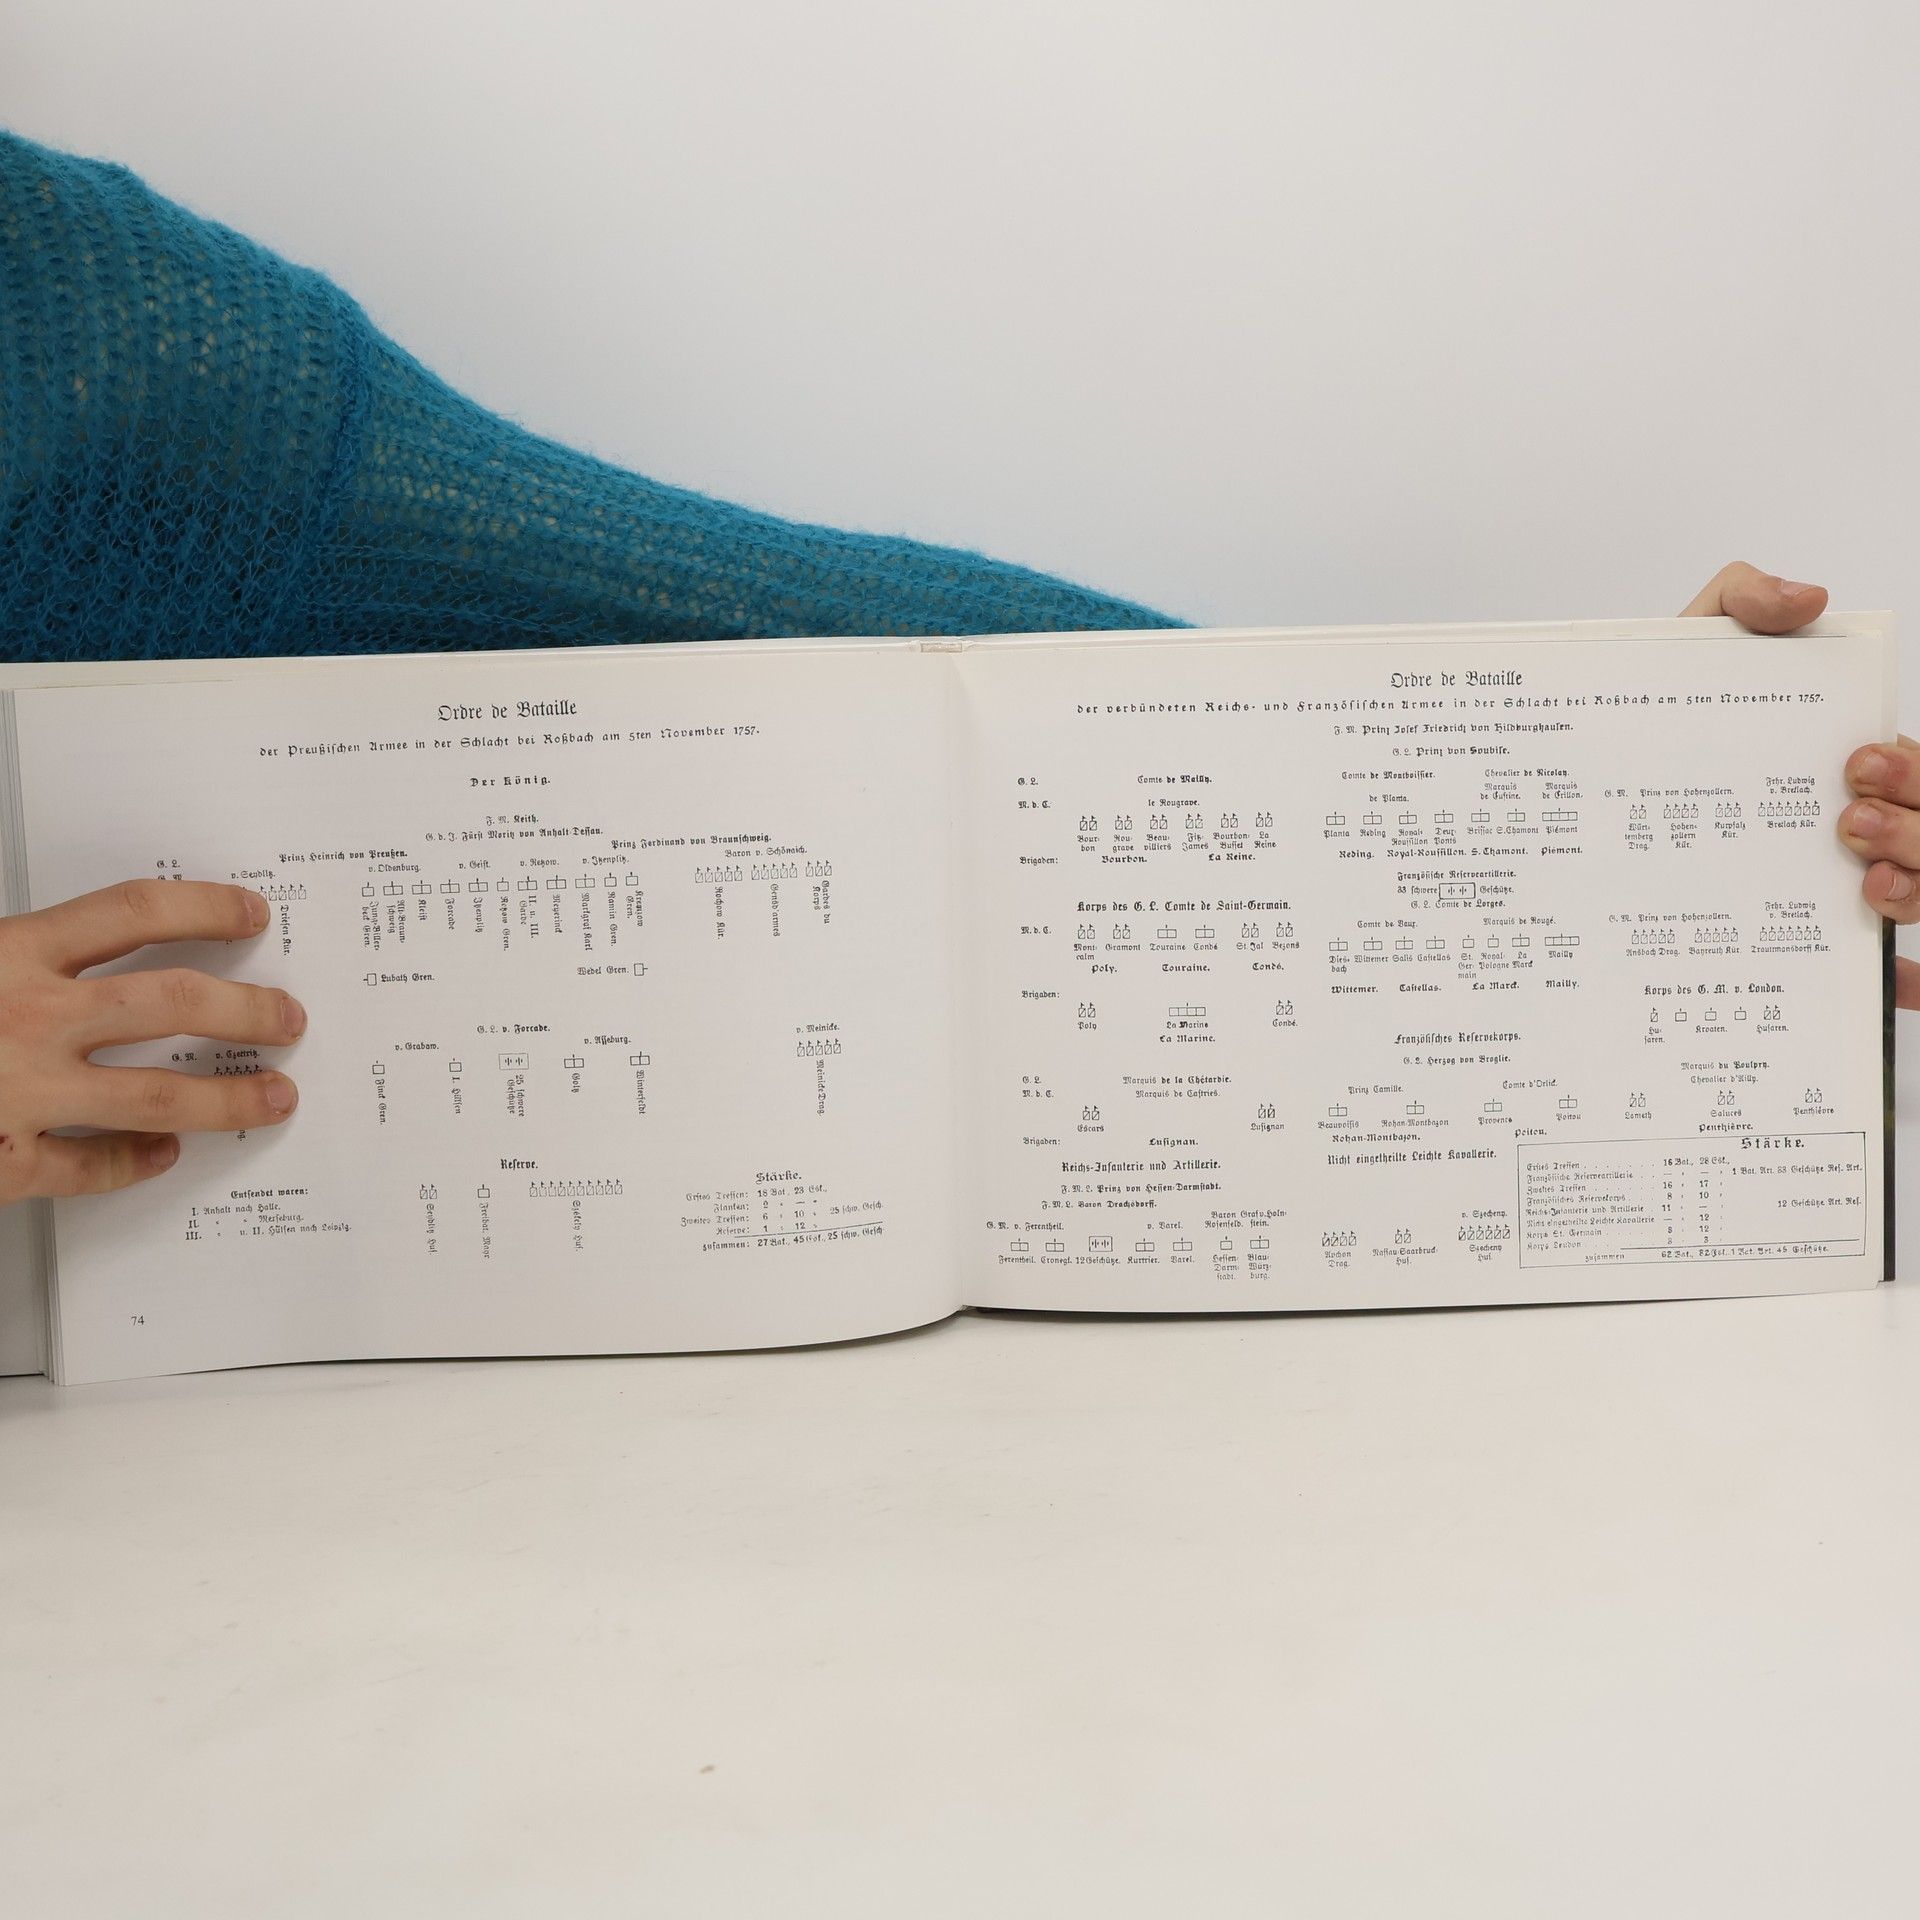 Ordre de Bataille
der Preußischen Armee in der Schlacht bei Roßbach am 5ten November 1757.
Der König.
F. M. Keith.
G. d. J. Fürst Moritz von Anhalt-Dessau.
Prinz Heinrich von Preußen.
Prinz Ferdinand von Braunschweig.
G. L.
v. Seydlitz.
v. Oldenburg.
v. Geist.
v. Retzow.
v. Itzenplitz.
Baron v. Schönaich.
Driesen Kür.
Jung-Biller-
beck Gren.
Alt-Braun-
schweig
Kleist
Forcade
Itzenplitz
Retzow Gren.
II. u. III.
Garde
Meyerinck
Markgraf Karl
Ramin Gren.
Kremzow
Gren.
Rochow Kür.
Gensd'armes
Gardes du
Korps
Lubath Gren.
Wedel Gren.
G. L. v. Forcade.
G. M. v. Czettritz.
v. Grabow.
v. Asseburg.
v. Meinicke.
Finck Gren.
I. Hülsen
25 schwere
Geschütze
Goltz
Winterfeldt
Meinicke Drag.
Reserve.
Entsendet waren:
I. Anhalt nach Halle.
II. " " Merseburg.
III. " u. II. Hülsen nach Leipzig.
Seydlitz Hus.
Freibat. Mayr
Szekely Hus.
Stärke.
Erstes Treffen: 18 Bat., 23 Esk.,
Flanken: 2 " — "
Zweites Treffen: 6 " 10 " 25 schw. Gesch.
Reserve: 1 " 12 "
zusammen: 27 Bat., 45 Esk., 25 schw. Gesch.
74
Ordre de Bataille
der verbündeten Reichs- und Französischen Armee in der Schlacht bei Roßbach am 5ten November 1757.
F. M. Prinz Josef Friedrich von Hildburghausen.
G. L. Prinz von Soubise.
G. L.
Comte de Mailly.
Comte de Montboissier.
Chevalier de Nicolay.
M. d. C.
le Rougrave.
de Planta.
Marquis
de Custine.
Marquis
de Crillon.
G. M. Prinz von Hohenzollern.
Frhr. Ludwig
v. Bretlach.
Bour-
bon
Rou-
grave
Beau-
villiers
Fitz-
James
Bourbon-
Busset
La
Reine
Planta
Reding
Royal-
Roussillon
Deux-
Ponts
Brissac
S. Chamont
Piémont
Würt-
temberg
Drag.
Hohen-
zollern
Kür.
Kurpfalz
Kür.
Bretlach Kür.
Brigaden:
Bourbon.
La Reine.
Reding.
Royal-Roussillon.
S. Chamont.
Piémont.
Französische Reserveartillerie.
33 schwere Geschütze.
G. L. Comte de Lorges.
Korps des G. L. Comte de Saint-Germain.
M. d. C.
Comte de Vaux.
Marquis de Rougé.
G. M. Prinz von Hohenzollern.
Frhr. Ludwig
v. Bretlach.
Mont-
calm
Gramont
Touraine
Condé
St. Jal
Bezons
Dies-
bach
Wittemer
Salis
Castellas
St.
Ger-
main
Royal-
Pologne
La
Marck
Mailly
Ansbach Drag.
Bayreuth Kür.
Trautmansdorff Kür.
Poly.
Touraine.
Condé.
Wittemer.
Castellas.
La Marck.
Mailly.
Brigaden:
Poly
La Marine
Condé.
La Marine.
Korps des G. M. v. Loudon.
Hu-
saren.
Kroaten.
Husaren.
Französisches Reservekorps.
G. L. Herzog von Broglie.
G. L.
Marquis de la Chétardie.
Marquis du Poulpry.
M. d. C.
Marquis de Castries.
Prinz Camille.
Comte d'Orlick.
Chevalier d'Ailly.
Escars
Lusignan
Beauvoisis
Rohan-Montbazon
Provence
Poitou
Lameth
Saluces
Penthièvre
Brigaden:
Lusignan.
Rohan-Montbazon.
Poitou.
Penthièvre.
Reichs-Infanterie und Artillerie.
F. M. L. Prinz von Hessen-Darmstadt.
F. M. L. Baron Drachsdorff.
G. M. v. Ferentheil.
v. Varel.
Baron
Rosenfeld.
Graf v. Holn-
stein.
Ferentheil.
Cronegk.
12 Geschütze.
Kurtrier.
Varel.
Hessen-
Darm-
stadt.
Blau-
Würz-
burg.
Nicht eingetheilte Leichte Kavallerie.
v. Szecheny.
Nassau-Saarbruck-
Hus.
Szecheny
Hus.
Stärke.
Erstes Treffen . . . 16 Bat., 28 Esk.,
Französische Reserveartillerie . . . — " — " 1 Bat. Art. 33 Geschütze Res. Art.
Zweites Treffen . . . 16 " 17 "
Französisches Reservekorps . . . 8 " 10 "
Reichs-Infanterie und Artillerie . 11 " — " 12 Geschütze Art. Res.
Nicht eingetheilte Leichte Kavallerie — " 12 "
Korps St. Germain . . . 8 " 12 "
Korps Loudon . . . 3 " 3 "
zusammen 62 Bat., 82 Esk. 1 Bat. Art. 45 Geschütze.